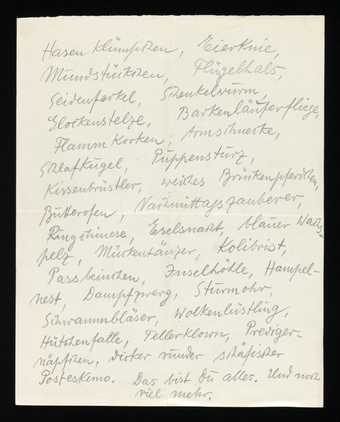 Hasenklümpchen, Eierknie,
Mundstückchen, Flügelhals,
Seidenferkel, Schenkelwurm,
Glockenstelze, Backenläuferfliege,
Flammkorken, Armschnecke,
Schlafkugel, Puppensturz,
Kissenbrüstler, weiches Brückenpferdchen,
Butterofen, Nachmittagszauberer,
Ringchinese, Eselsnackt, blauer
pelz, Mückentänzer, Kolibrist,
Passbeinchen, Inselhöhle, Hampel-
nest, Dampfzwerg, Sturmohr,
Schwammbläser, Wolkenlüstling,
Hütchenfalle, Tellerklown, Prediger-
näpfchen, dicker runder
Posteskimo. Das bist Du alles. Und noch
viel mehr.